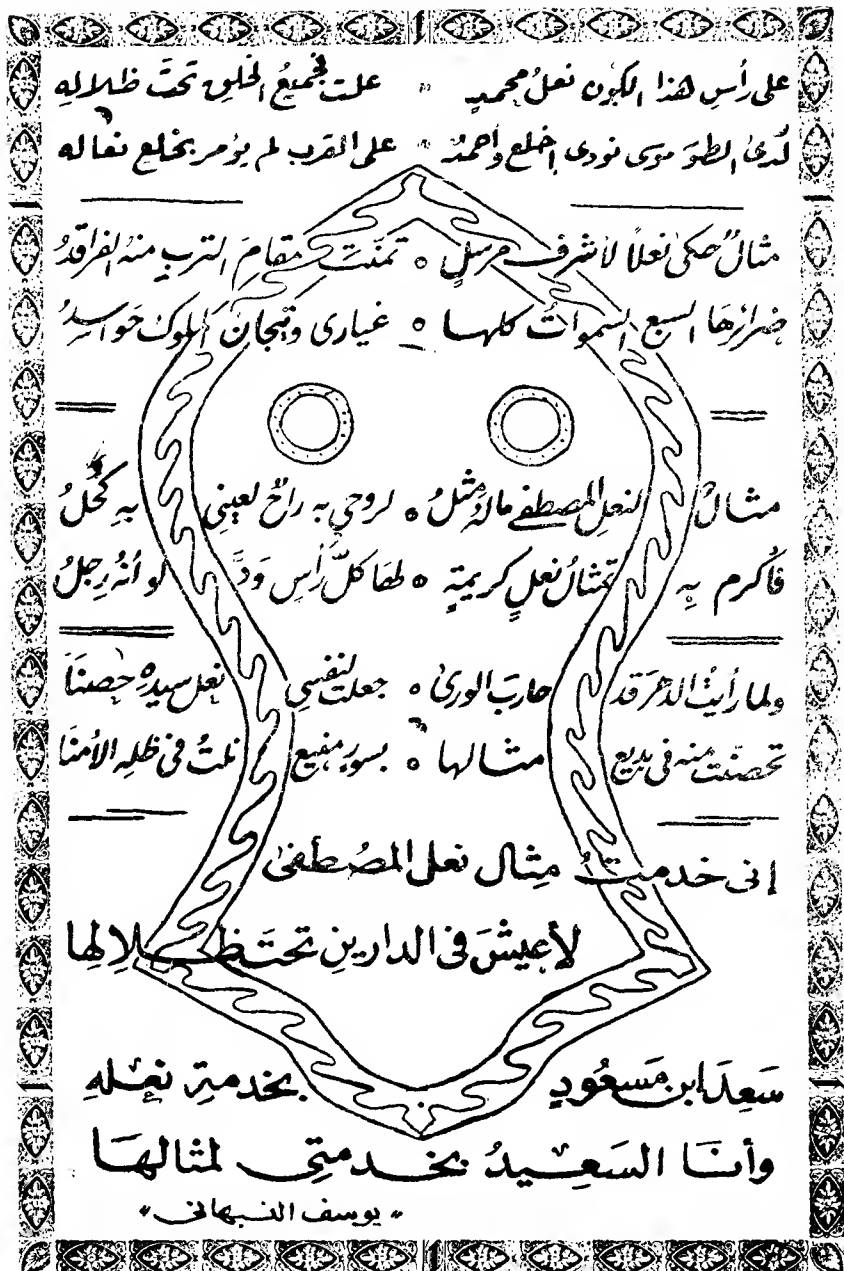 على رأس هذا الكون نعلُ محمدٍ علت فجميعُ الخلق تحتَ ظلالهِ
لدى الطور موسى نودي اخلع وأحمدٌ على القرب لم يؤمر بخلع نعاله
مثالٌ حكى نعلاً لأشرف مرسلٍ ٥ تمنّت مقامَ التربِ منهُ الفراقدُ
ضرائرُهَا السبع السمواتُ كلها ٥ غيارى وتيجانُ الملوك حَواسدُ
مثالٌ لنعلِ المصطفى مالهُ مثلُ ٥ لروحي به راحٌ لعيني بهِ كُحلُ
فأكرم بِهِ تمثالُ نعلٍ كريمةٍ ٥ لهَا كلّ رأسٍ وَدَّ لو أنهُ رِجلُ
ولما رأيتُ الدهرَ قد حاربَ الورى ٥ جعلت لنفسي نعل سيده حِصنَا
تحصنت منه في بديع مثالها ٥ بسورٍ منيع نلتُ في ظله الأمنَا
إني خدمتُ مِثال نعل المصُطفى
لأعيشَ في الدارينِ تحتَ ظلالِها
سَعِدَ ابن مَسعُودٍ بخدمةِ نعلهِ
وأنَا السَعِيدُ بخدمتي لمثالهَا
» يوسف النبهاني »